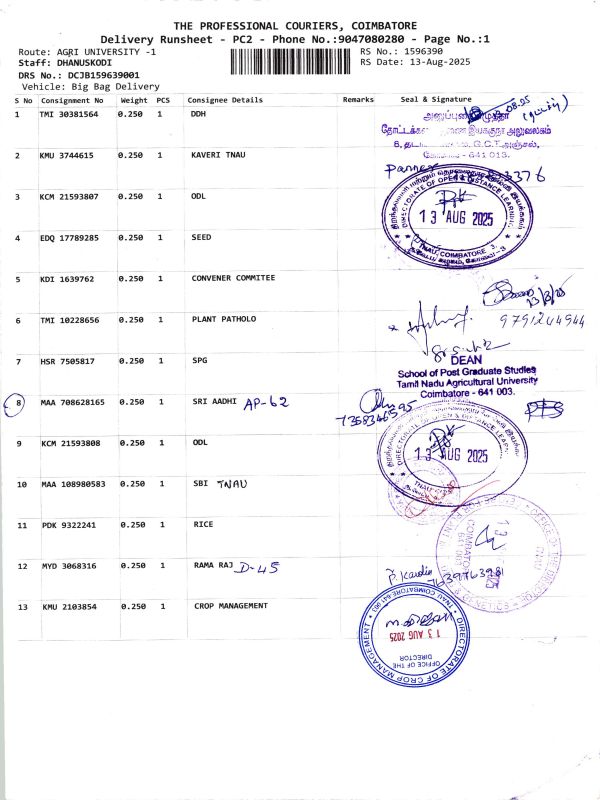 THE PROFESSIONAL COURIERS, COIMBATORE
Delivery Runsheet - PC2 - Phone No.:9047080280 - Page No.:1
Route: AGRI UNIVERSITY -1
RS No.: 1596390
Staff: DHANUSKODI
RS Date: 13-Aug-2025
DRS No.: DCJB159639001
Vehicle: Big Bag Delivery
S No Consignment No Weight PCS Consignee Details Remarks Seal & Signature
1 TMI 30381564 0.250 1 DDH
அலுவலகம்
G.C.T அஞ்சல்,
- 641 013.
2 KMU 3744615 0.250 1 KAVERI TNAU
3 KCM 21593807 0.250 1 ODL
DIRECTORATE OF OPEN & DISTANCE LEARNING
13 AUG 2025
TNAU, COIMBATORE 3.
4 EDQ 17789285 0.250 1 SEED
5 KDI 1639762 0.250 1 CONVENER COMMITEE
13/8/25
6 TMI 10228656 0.250 1 PLANT PATHOLO
9791244944
7 HSR 7505817 0.250 1 SPG
DEAN
School of Post Graduate Studies
Tamil Nadu Agricultural University
Coimbatore - 641 003.
8 MAA 708628165 0.250 1 SRI AADHI AP-62
9 KCM 21593808 0.250 1 ODL
13 AUG 2025
10 MAA 108980583 0.250 1 SBI TNAU
11 PDK 9322241 0.250 1 RICE
12 MYD 3068316 0.250 1 RAMA RAJ D-45
7639763981
13 KMU 2103854 0.250 1 CROP MANAGEMENT
TNAU COIMBATORE 641 003
13 AUG 2025
OFFICE OF THE
DIRECTOR
DIRECTORATE OF CROP MANAGEMENT